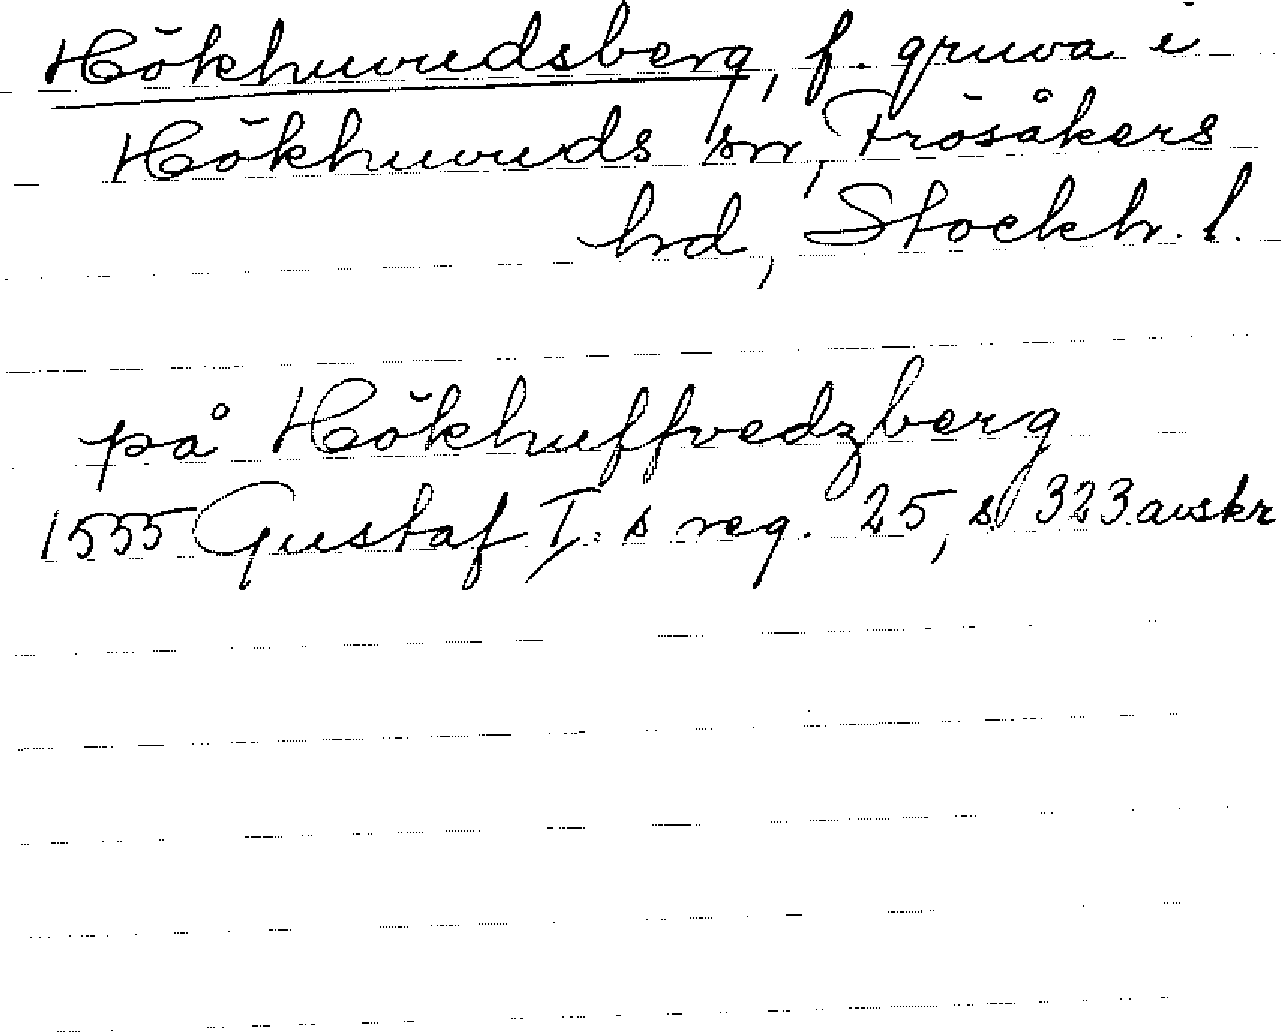 Hökhuvudsberg, f. gruva i
Hökhuvuds sn, Frösåkers
hrd, Stockh. l.
på Hökhuffvedzberg
1555 Gustaf I:s reg. 25, s 323 avskr